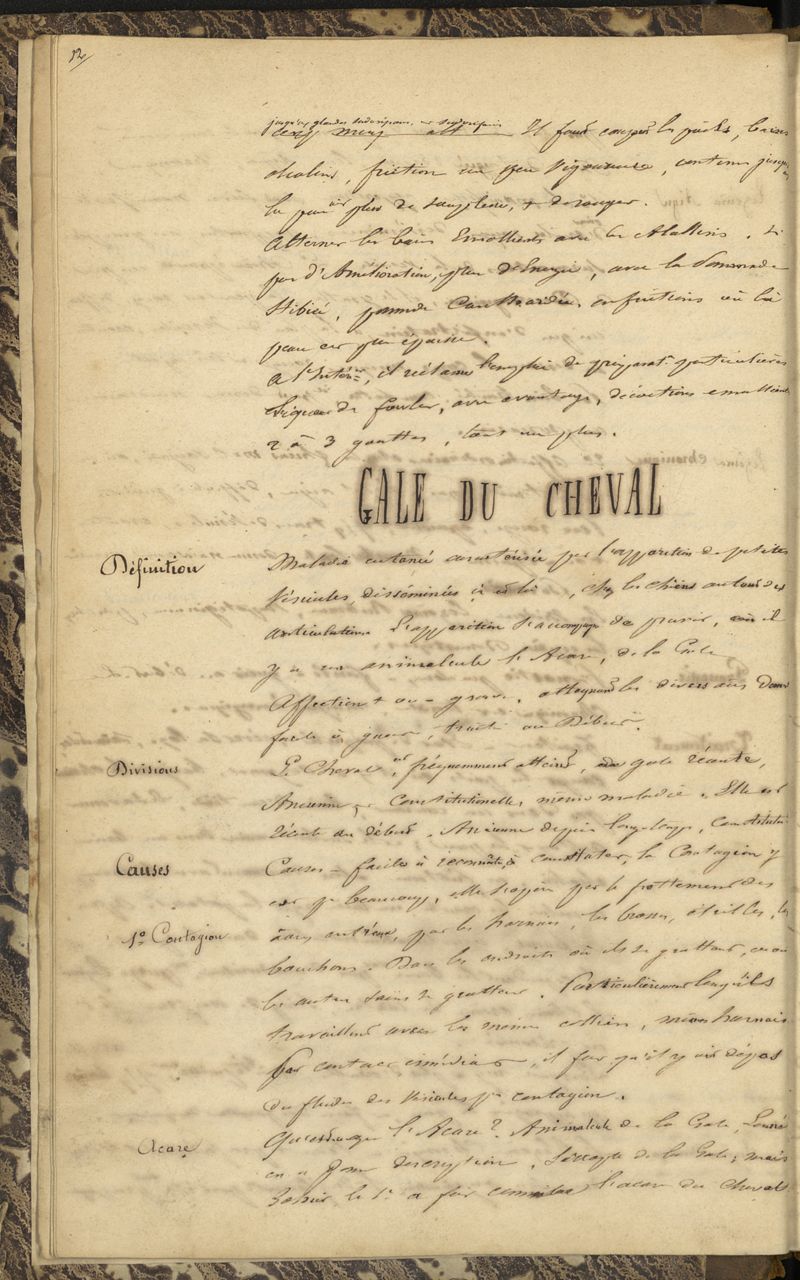 12/
Il faut couper les poils, bains
alcalins, friction un peu vigoureuse,
la peau plus de souplesse, + de rouger.
Alterner les bains Emollients avec les Alcalins. Si
pas d'Amélioration, plus d'Energie, avec la Pommade
Stibiée, pommade Cantharidée, en frictions où la
peau est plus épaisse.
A l'Intérr, il réclame l'emploi de préparatt particulières
Liqueur de Fowler, avec avantage, décoctions emollientes
2 à 3 gouttes, tout au plus.
GALE DU CHEVAL
Définition
Maladie cutanée caractérisée par l'apparition de petites
Vésicules, disséminées çà et là, chez les chiens autour des
articulations L'apparition s'accompagne de prurit, où il
y a un animalcule l'Acare, de la Gale
Affection + ou - grave, attaquant les divers aux Dom
facile à guérir, traité au Début.
Divisions
Le Cheval est fréquemment atteint, de gale récente,
Ancienne et Constitutionelle, même maladie. Elle est
récente au début. Ancienne depuis longtemps,
Causes
Causes - faciles à reconnaître à constater, la Contagion y
est pr beaucoup, elle s'opère par le frottement des
1o Contagion
aux entr'eux, par les harnais, les brosses, étrilles, les
bouchons. Dans les endroits où ils se grattent, ou
les autres sains se grattent. Particulièrement lorsqu'ils
travaillent avec les mêmes colliers, même harnais
Par contact immédiat, il faut qu'il y ait dépos
du fluide des Vésicules pr contagion.
Acare
Qu'est-ce que l'Acare? Animalcule de la Gale,
en a donné description, s'occupe de la Gale, mais
le 1er a fait connaître l'acare du Cheval